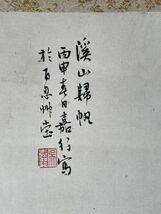 溪山歸帆
丙申春日嘉行寫
於百忍草堂